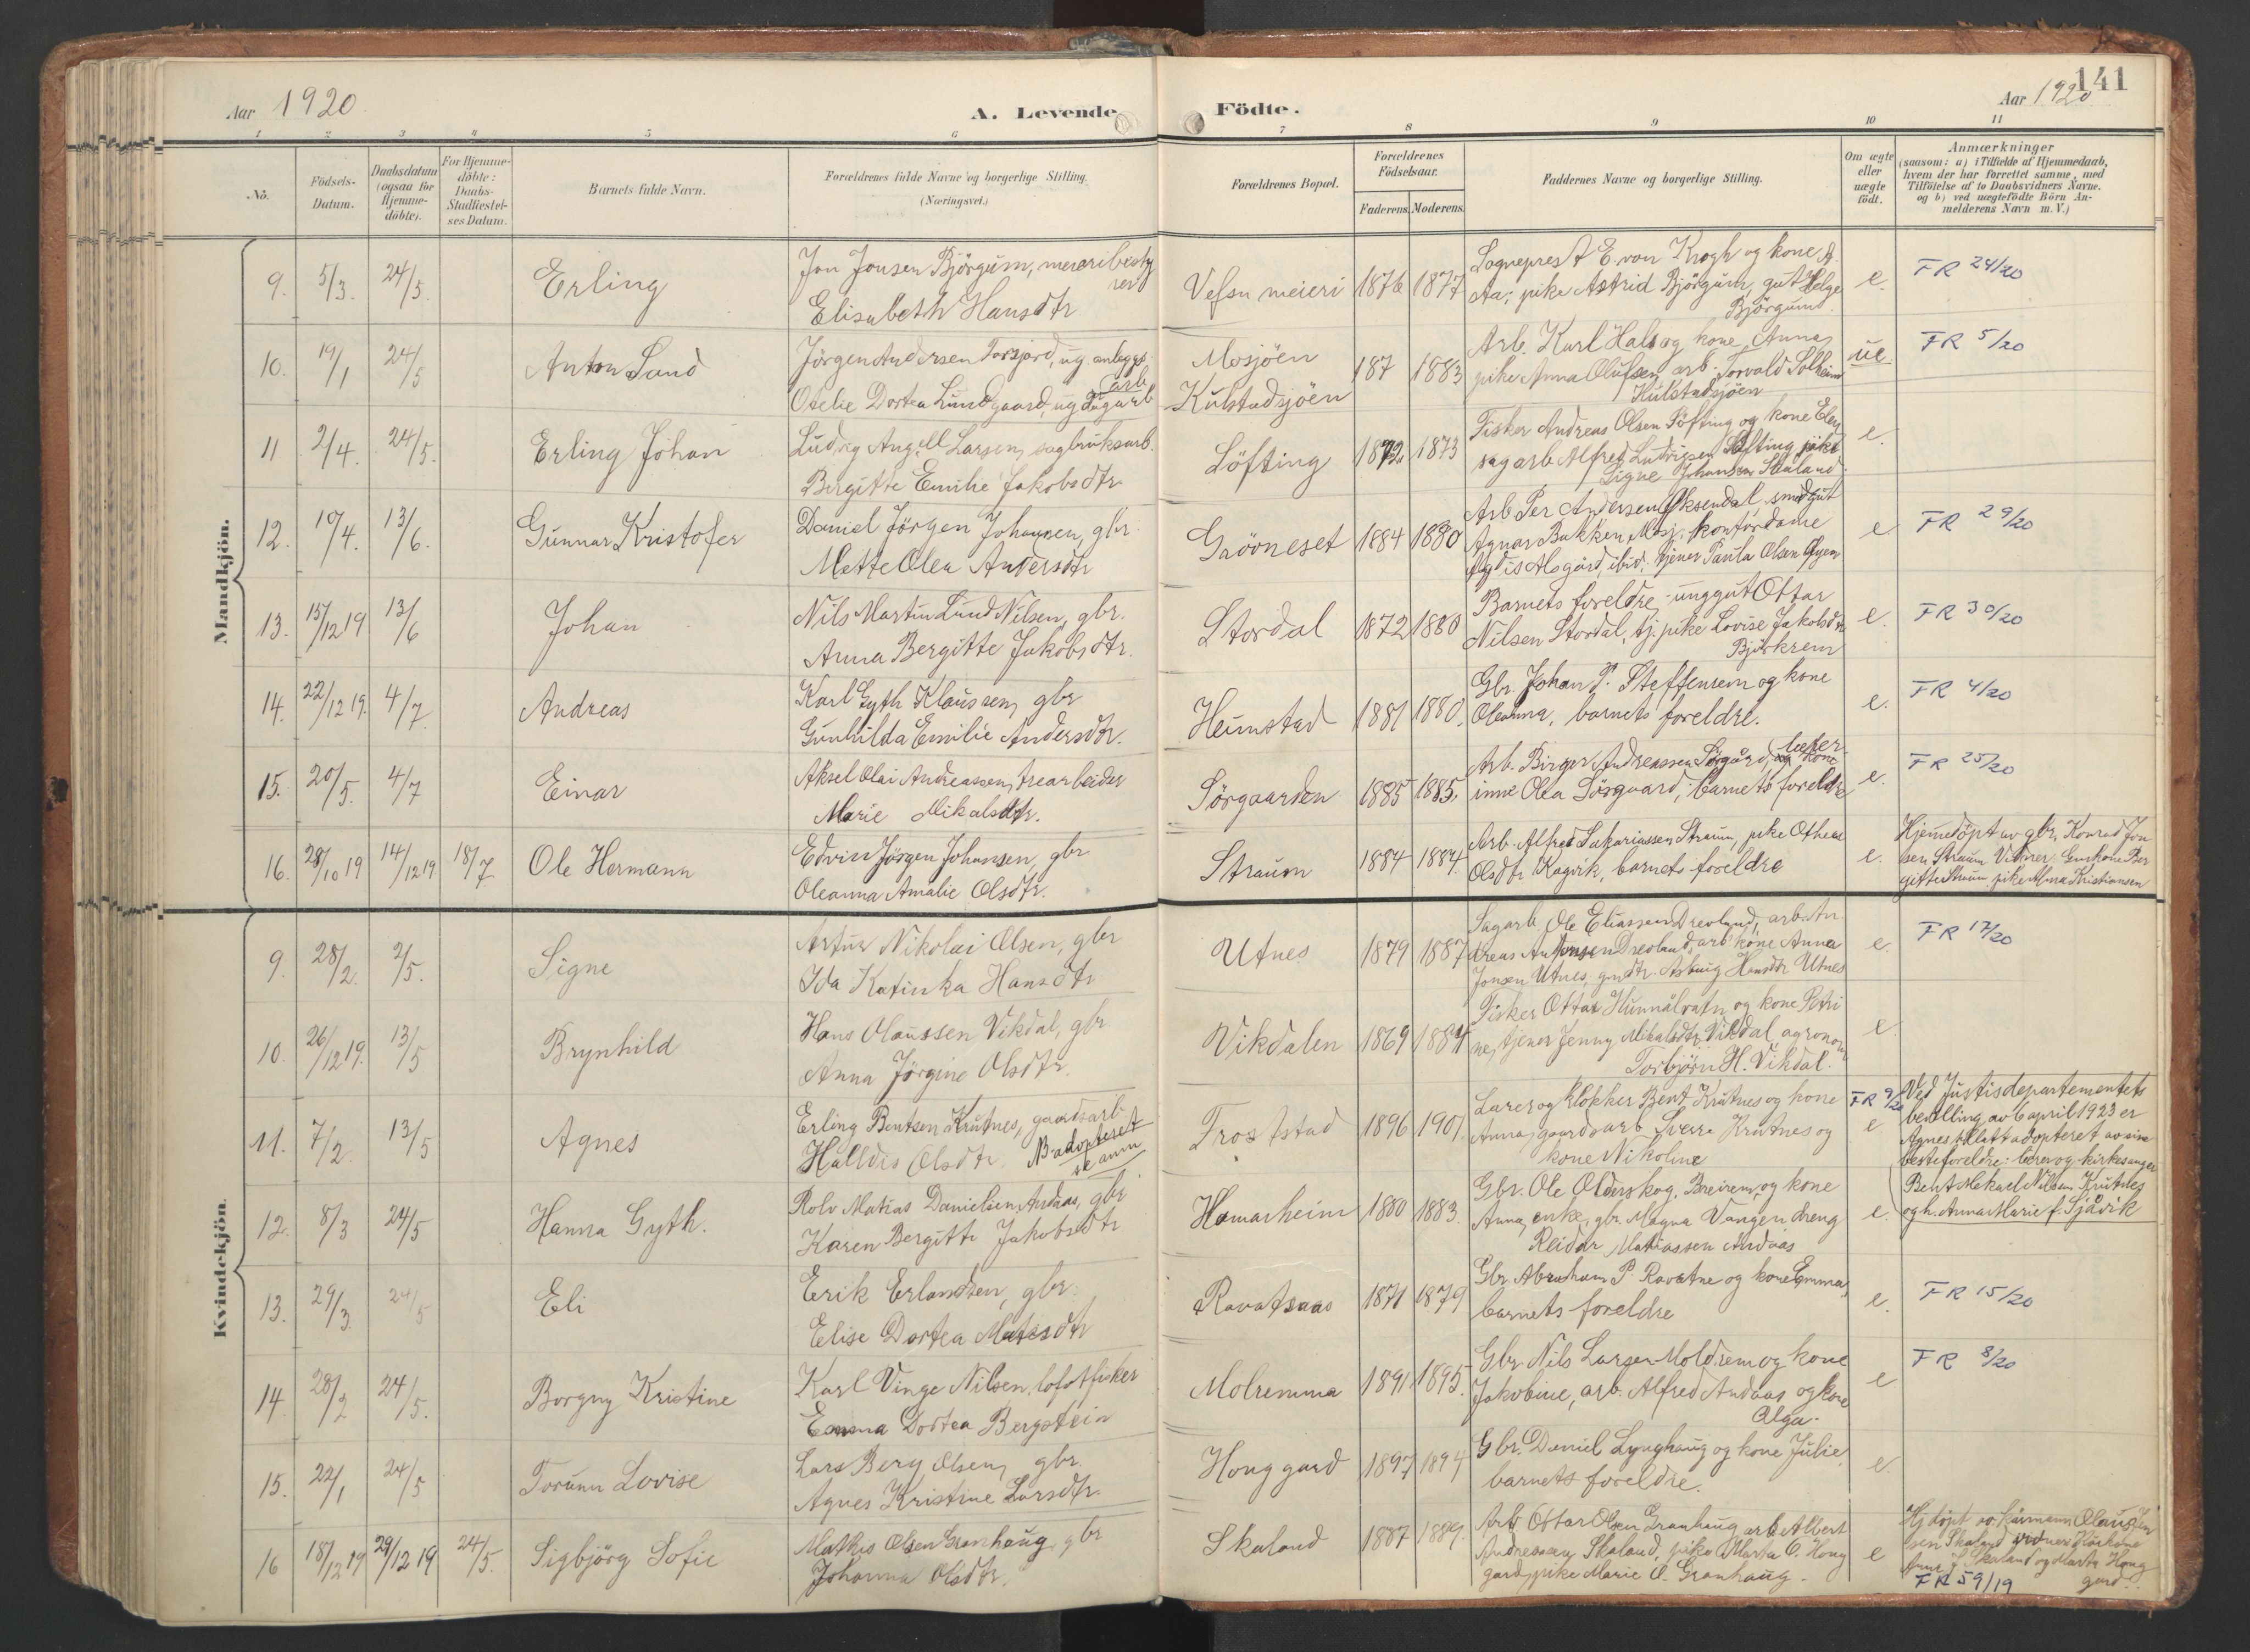 Aar 1920.
A. Levende
Födte.
Aar 1920
141
1 2 3 4 5 6 7 8 9 10 11
No.
Födsels-
Datum.
Daabsdatum
(ogsaa för
Hjemme-
döbte).
For Hjemme-
döbte:
Daabs-
Stadfæstel-
ses Datum.
Barnets fulde Navn.
Forældrenes fulde Navne og borgerlige Stilling.
(Næringsvei.)
Forældrenes Bopæl.
Forældrenes
Födselsaar.
Faderens.
Moderens.
Faddernes Navne og borgerlige Stilling.
Om ægte
eller
uægte
født.
Anmærkninger
(saasom: a) i Tilfælde af Hjemmedaab,
hvem der har forrettet samme, med
Tilföielse af to Daabsvidners Navne.
og b) ved uægtefödte Börn An-
melderens Navn m. V.)
Mandkjön.
9. 5/3. 24/5. Erling
Jon Jonsen Björgum, meieribesty
rer
Elisabeth Hansdtr
Vefsn meieri 1876 1877
Sogneprest E. von Krogh og kone A.
Aa; pike Astrid Björgum, gut Helge
Björgum.
e. FR 24/20
10. 19/1 24/5 Anton Lund
Jörgen Andersen Forsjord, ug. anleggs
arb
Otelie Dortea Lundgaard, ug
Mosjöen
Kulstadsjöen
187 1883
Arb. Karl Hals og kone Anna,
pike Anna Olufsen arb. Torvald Solheim
Kulstadsjöen
ue. FR 5/20
11 2/4. 24/5. Erling Johan
Ludvig Angell Larsen, sagbruksarb.
Birgitte Emilie Jakobsdtr.
Löfting 1872 1873
Fisker Andreas Olsen Löfting og kone Elen
sagarb Alfred Ludvigsen Löfting pike
Signe Johansen Skaland.
e.
12. 10/4. 13/6. Gunnar Kristofer
Daniel Jörgen Johansen, gbr
Mette Olea Andersdtr
Gåövneset 1884 1880
Arb Per Andersen Öksendal, smedgut
Agnar Bakken, Mosj, kontordame
Alsgård, ibid, tjener Paula Olsen Öyen
e FR 29/20
13. 15/12 19 13/6 Johan
Nils Martin Lund Nilsen, gbr.
Anna Bergitte Jakobsdtr.
Stordal 1872 1880
Barnets foreldre, unggut Ottar
Nilsen Stordal, tj. pike Lovise Jakobsdtr
Björkrem
e. FR 30/20
14. 22/12 19. 4/7. Andreas
Karl Gyth Klaussen, gbr
Gunhilda Emilie Andersdtr.
Heimstad 1881 1880.
Gbr. Johan P. Steffensem og kone
Oleanna, barnets foreldre.
e. FR 4/20
15. 20/5. 4/7 Einar
Aksel Olai Andreassen, trearbeider
Marie Mikalsdtr.
Sörgaarden 1885 1885.
Arb. Birger Andreassen Sörgård, leier
inne Olea Sörgaard, barnets foreldre
e. FR 25/20
16. 28/10 19 14/12 19 18/7 Ole Hermann
Edvin Jörgen Johansen, gbr
Oleanna Amalie Olsdtr.
Straum 1884 1884.
Arb. Alfred Sakariassen Straum, pike Othea
Olsdtr Kagvik, barnets foreldre
e.
Hjemedöpt av gbr. Konrad Jon
sen Straum Vitner: Gmkone Ber
gitte Straum, pike Alma Kristiansen
Kvindekjön.
9. 28/2. 2/5. Signe
Artur Nikolai Olsen, gbr
Ida Katinka Hansdtr
Utnes 1879 1887
Sagarb Ole Eliassen Drevland, arb. An
dreas Antonsen Drevland, arb kone Anna
Jonsen Utnes, gmdtr. Asbiug Hansdtr Utnes
e. FR 17/20
10. 26/12 19. 13/5 Brynhild
Hans Olaussen Vikdal, gbr
Anna Jörgine Olsdtr.
Vikdalen 1869 1884
Fisker Ottar Hunnålvatn og kone Petri
ne, tjener Jenny Mikalsdtr Vikdal, agronom
Torbjörn H. Vikdal.
e
11. 7/2. 13/5 Agnes
Erling Bentsen Krutnes, gaardsarb.
Halldis Olsdtr. NB. adopteret
se anm
Trostad 1896 1901
Lærer og klokker Bent Krutnes og kone
Anna, gaardsarb Sverre Krutnes og
kone Nikoline
FR 9/20
e
Ved Justisdepartementets
bevilling av 6 april 1923 er
Agnes tillatt adopteret av sine
besteforeldre: lærer og kirkesanger
Bent Mekael Nilssen Krutnes
og h. Anna Marie f. Sjåvik
12. 8/3 24/5 Hanna Gyth.
Rolv Matias Danielsen Andaas, gbr
Karen Bergitte Jakobsdtr
Hamarheim 1880 1883.
Gbr. Ole Olderskog, Breirem, og kone
Anna, enke, gbr. Magna Vangen, dreng
Reidar Matiassen Andaas
e.
13. 29/3 24/5 Eli
Erik Erlandsen, gbr.
Elise Dortea Matisdtr
Ravatsaas 1871 1879
Gbr Abraham P. Ravatne og kone Emma,
barnets foreldre
e. FR 15/20
14 28/2 24/5. Borgny Kristine
Karl Vinge Nilsen, lofotfisker
Emma Dortea Bergstein
Molremma 1891 1895.
Gbr. Nils Larsen Moldrem og kone
Jakobine, arb. Alfred Andaas og kone
Olga.
e FR 8/20
15. 22/1 24/5 Torunn Lovise
Lars Berg Olsen, gbr.
Agnes Kristine Larsdtr.
Honggard 1897 1894
Gbr. Daniel Lynghaug og kone Julie,
barnets foreldre.
e.
16 18/12 19 29/12 19 24/5. Sigbjörg Sofie
Mathis Olsen Granhaug gbr
Johanna Olsdtr.
Skaland 1887 1889.
Arb Ottar Olsen Granhaug, arb Albert
Andreassen Skaland, pike Marta O. Hong
gard, pike Marie O. Granhaug.
e
Hj döpt av kårmann Olaus
sen Skaland vidner: Kårkone
Skaland og Marta Hong
gard.
FR 59/19